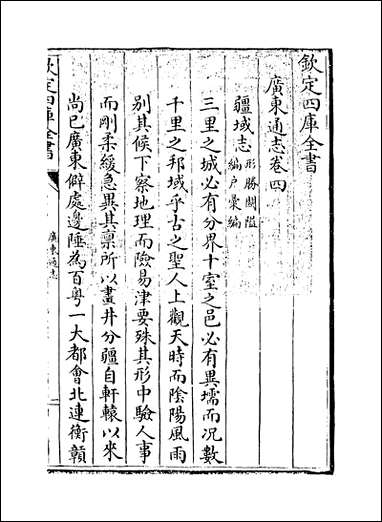 欽定四庫全書
廣東通志卷四
疆域志
形勝關隘
編戶彙編
三里之城必有分界十室之邑必有異壖而况數
千里之邦域乎古之聖人上觀天時而陰陽風雨
別其候下察地理而險易津要殊其形中驗人事
而剛柔緩急異其禀所以畫井分疆自軒轅以來
尚已廣東僻處邊陲為百粤一大都會北連衡贛
欽定四庫全書
廣東通志